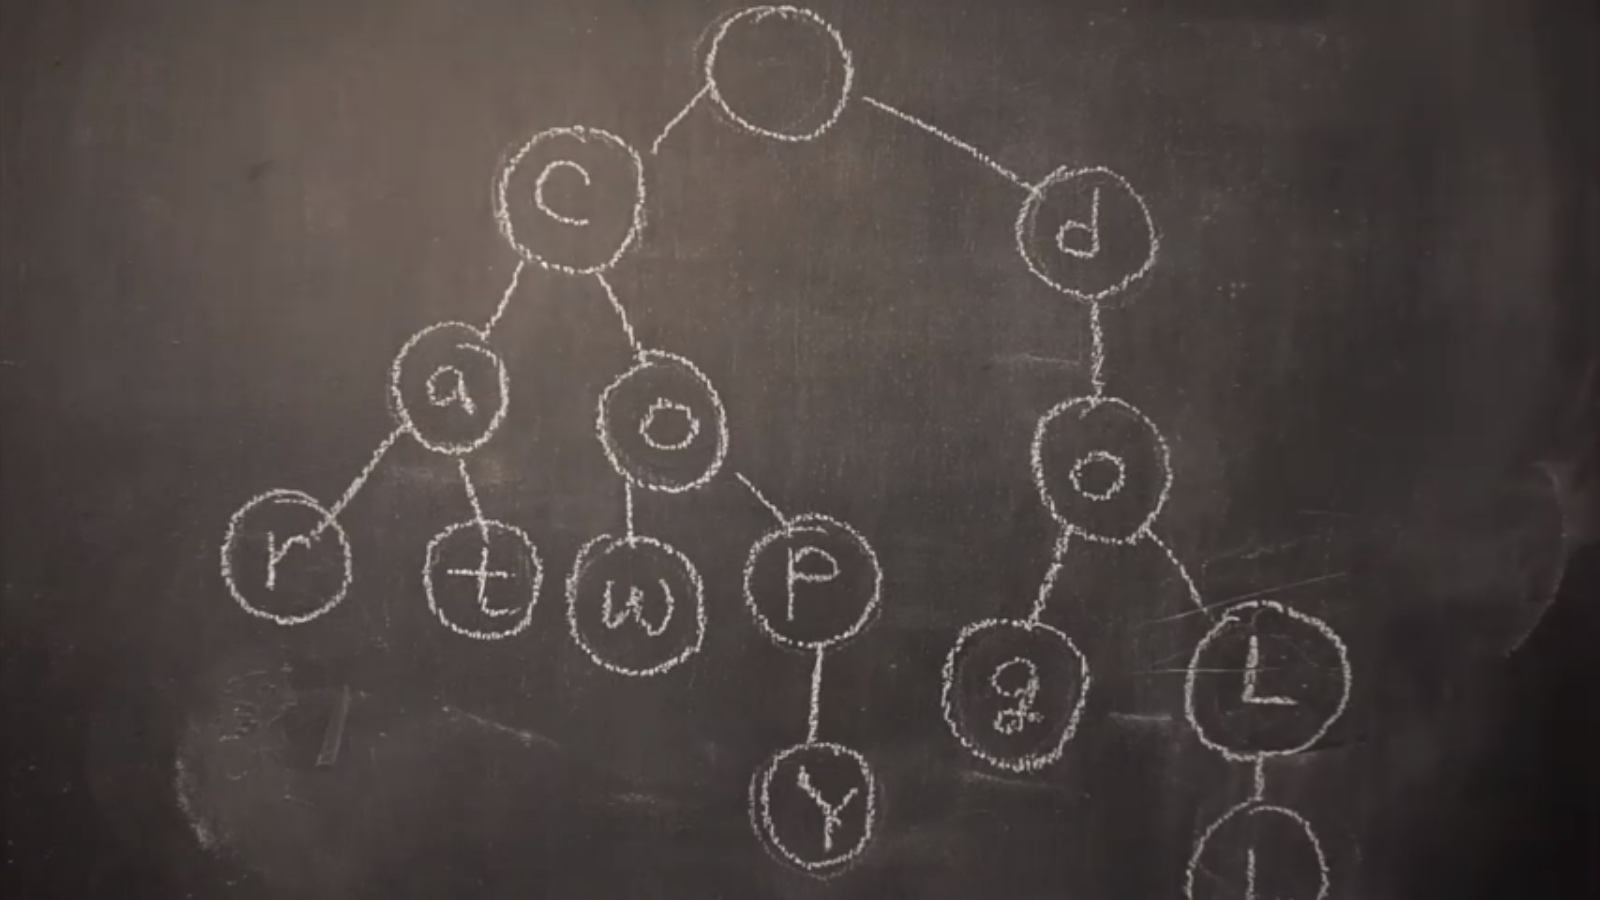 C
d
a
o
o
r
t
w
P
g
L
Y